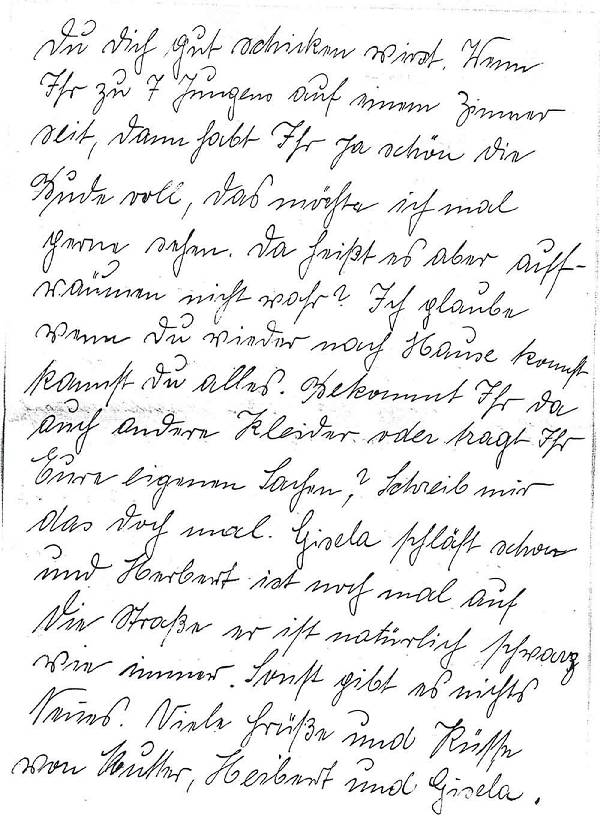 Du Dich gut schicken wirst. Wenn
Ihr zu 7 Jungens auf einem Zimmer
seit, dann habt Ihr ja schön die
Bude voll, das möchte ich mal
gerne sehen. Da heißt es aber auff-
räumen nicht wahr? Ich glaube
wenn Du wieder nach Hause kommst
kannst Du alles. Bekommt Ihr da
auch andere Kleider oder tragt Ihr
Eure eigenen Sachen,? Schreib mir
das doch mal. Gisela schläft schon
und Herbert ist noch mal auf
die Straße er ist natürlich schwarz
wie immer. Sonst gibt es nichts
Neues. Viele Grüße und Küsse
von Mutter, Heibert und Gisela.